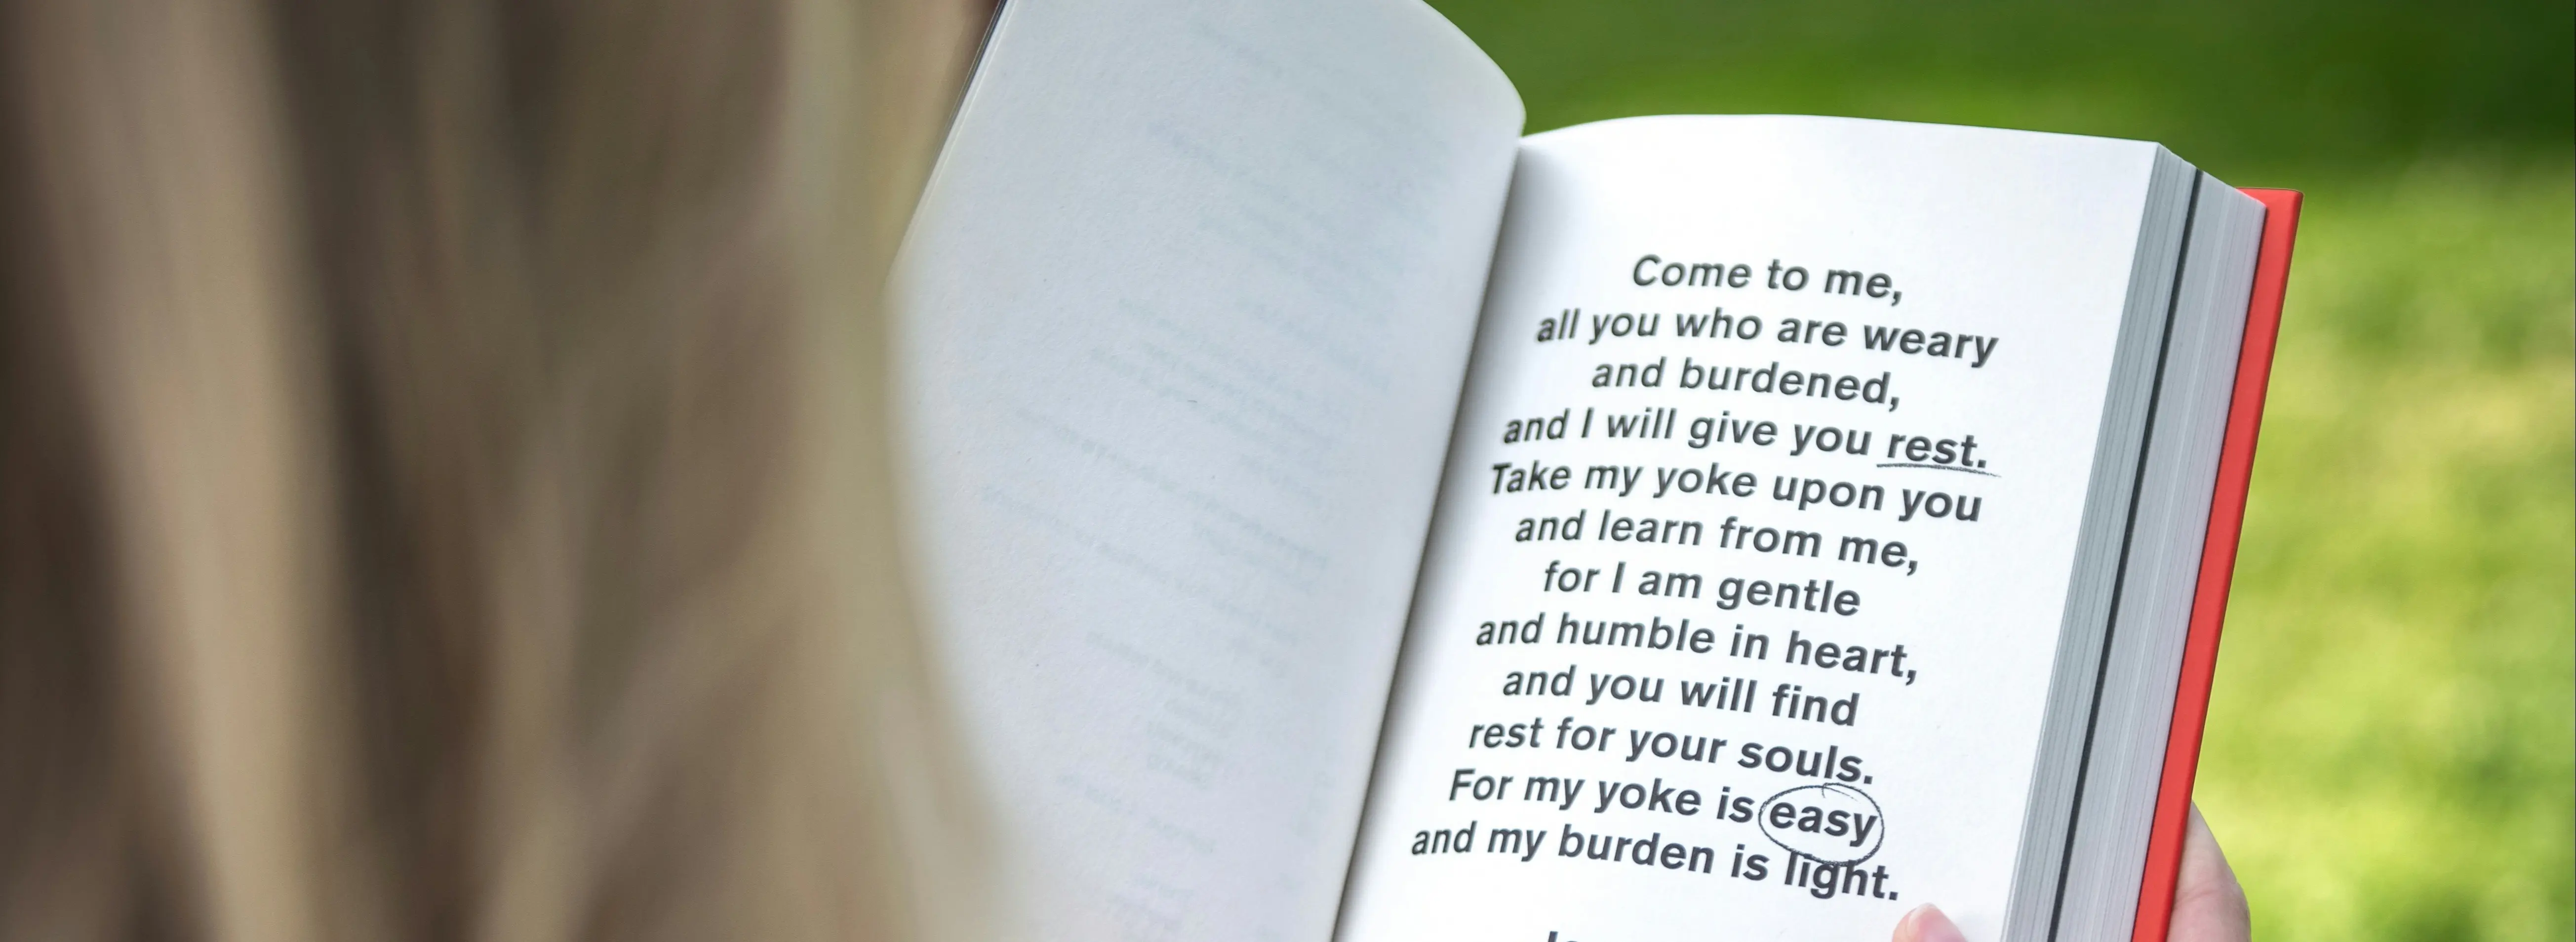 Come to me,
all you who are weary
and burdened,
and I will give you rest.
Take my yoke upon you
and learn from me,
for I am gentle
and humble in heart,
and you will find
rest for your souls.
For my yoke is easy
and my burden is light.